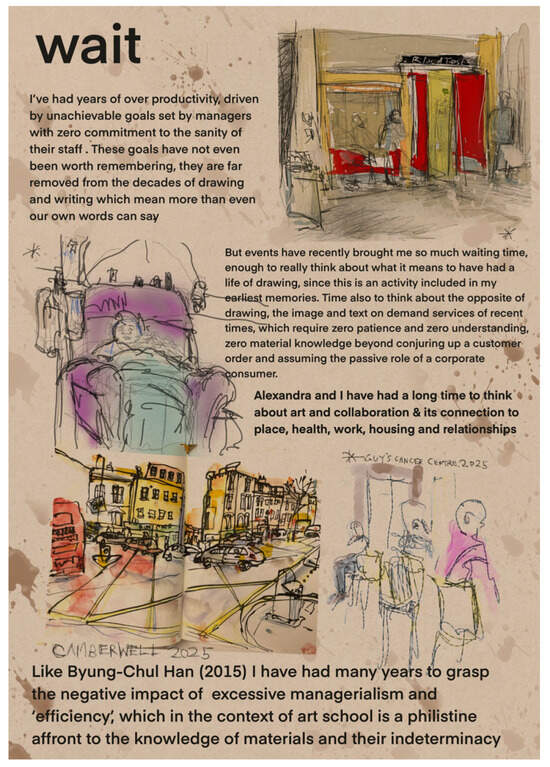 wait
Blood Test
I've had years of over productivity, driven
by unachievable goals set by managers
with zero commitment to the sanity of
their staff . These goals have not even
been worth remembering, they are far
removed from the decades of drawing
and writing which mean more than even
our own words can say
But events have recently brought me so much waiting time,
enough to really think about what it means to have had a
life of drawing, since this is an activity included in my
earliest memories. Time also to think about the opposite of
drawing, the image and text on demand services of recent
times, which require zero patience and zero understanding,
zero material knowledge beyond conjuring up a customer
order and assuming the passive role of a corporate
consumer.
Alexandra and I have had a long time to think
about art and collaboration & its connection to
place, health, work, housing and relationships
GUY'S CANCER CENTRE. 2025
CAMBERWELL 2025
Like Byung-Chul Han (2015) I have had many years to grasp
the negative impact of excessive managerialism and
‘efficiency’, which in the context of art school is a philistine
affront to the knowledge of materials and their indeterminacy